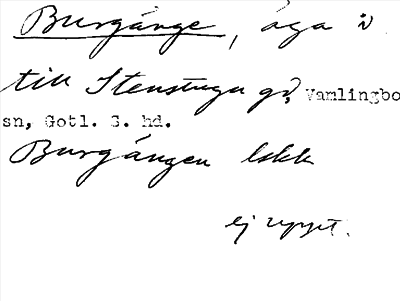 Burgänge, äga i
till Stenstugu gd, Vamlingbo
sn, Gotl. S. hd.
Burgängen lskk
ej uppt.